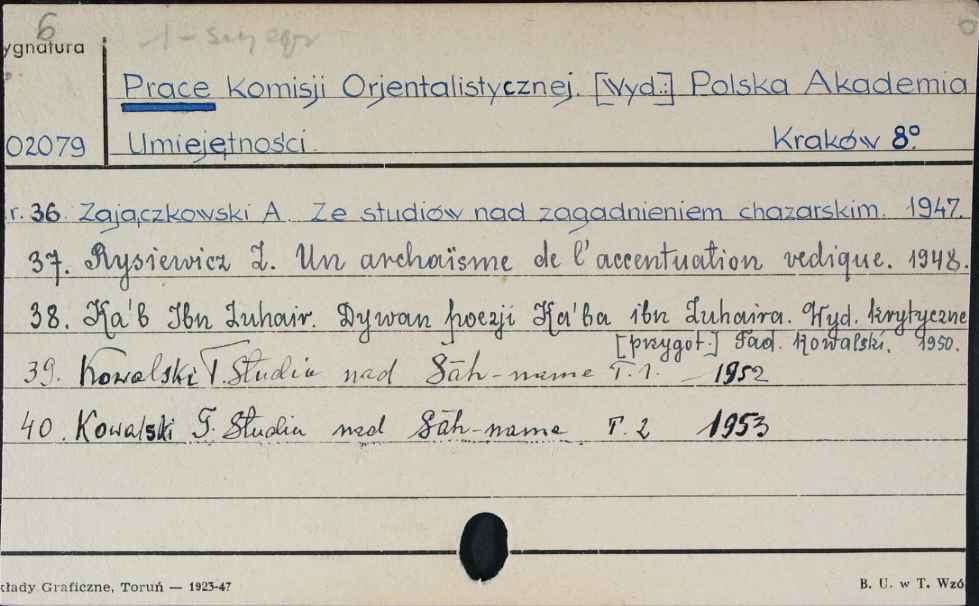 6
ygnatura
Prace Komisji Orjentalistycznej. [Wyd.:] Polska Akademia
02079 Umiejętności. Kraków 8°.
r. 36. Zajączkowski A. Ze studiów nad zagadnieniem chazarskim. 1947.
37. Rysiewicz Z. Un archaïsme de l'accentuation vedique. 1948.
38. Ka'b Ibn Zuhair. Dywan poezji Ka'ba ibn Zuhaira. Wyd. krytyczne
[przygot.] Tad. Kowalski. 1950.
39. Kowalski T. Studia nad Šāh-name T. 1. 1952
40. Kowalski T. Studia nad Šāh-name T. 2 1953
kłady Graficzne, Toruń — 1923-47 B. U. w T. Wzó